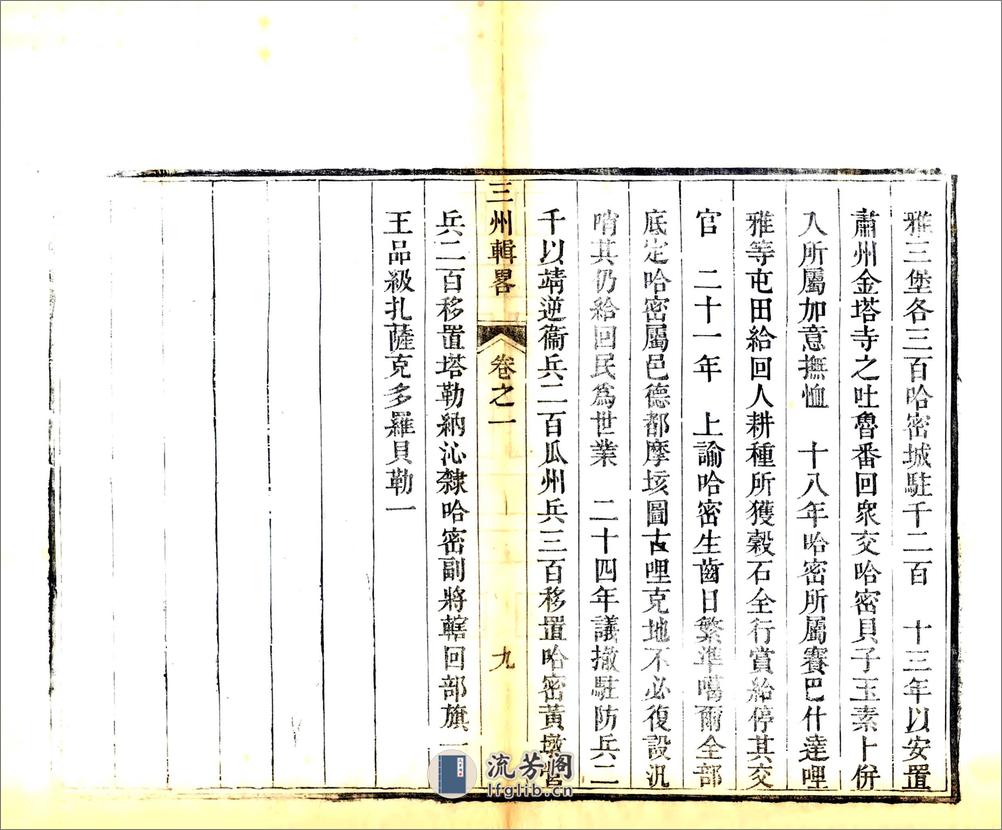 雅三堡各三百哈密城駐千二百　十三年以安置
肅州金塔寺之吐魯番回衆交哈密貝子玉素卜併
入所屬加意撫恤　十八年哈密所屬賽巴什達哩
雅等屯田給回人耕種所獲穀石全行賞給停其交
官　二十一年　上諭哈密生齒日繁準噶爾全部
底定哈密屬邑德都摩垓圖古哩克地不必復設汛
哨其仍給回民爲世業　二十四年議撤駐防兵二
千以靖逆衞兵二百瓜州兵三百移置哈密黃墩營
三州輯畧　卷之一　九
兵二百移置塔勒納沁隸哈密副將轄回部旗一
王品級扎薩克多羅貝勒一
流芳阁
lfglib.cn